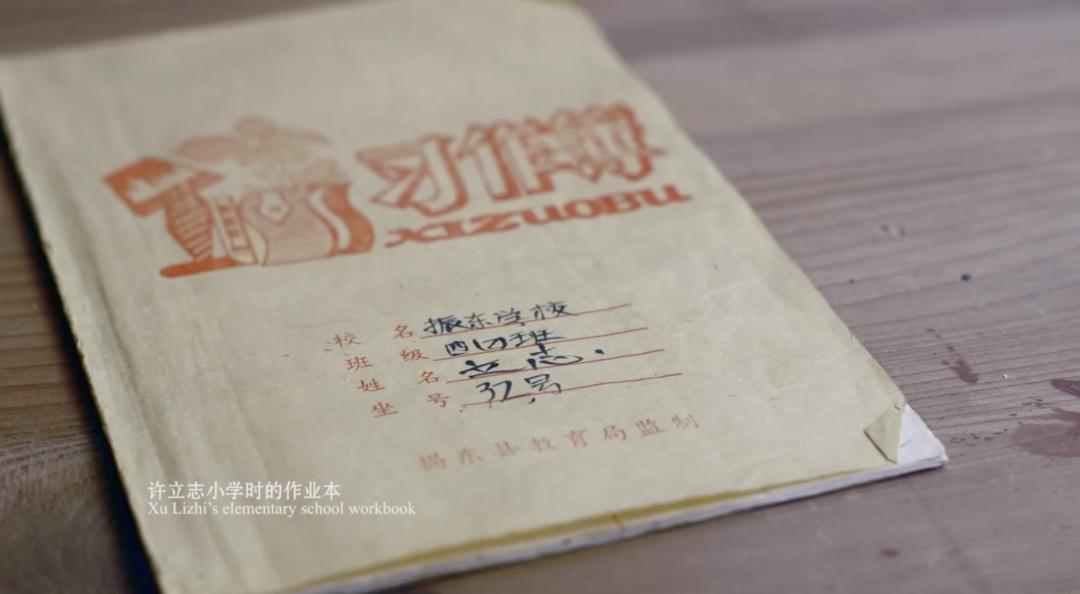 习作簿
XIZUOBU
校 名 振东学校
班 级 四(7)班
姓 名 立志.
坐 号 32号
揭东县教育局监制
许立志小学时的作业本
Xu Lizhi's elementary school workbook